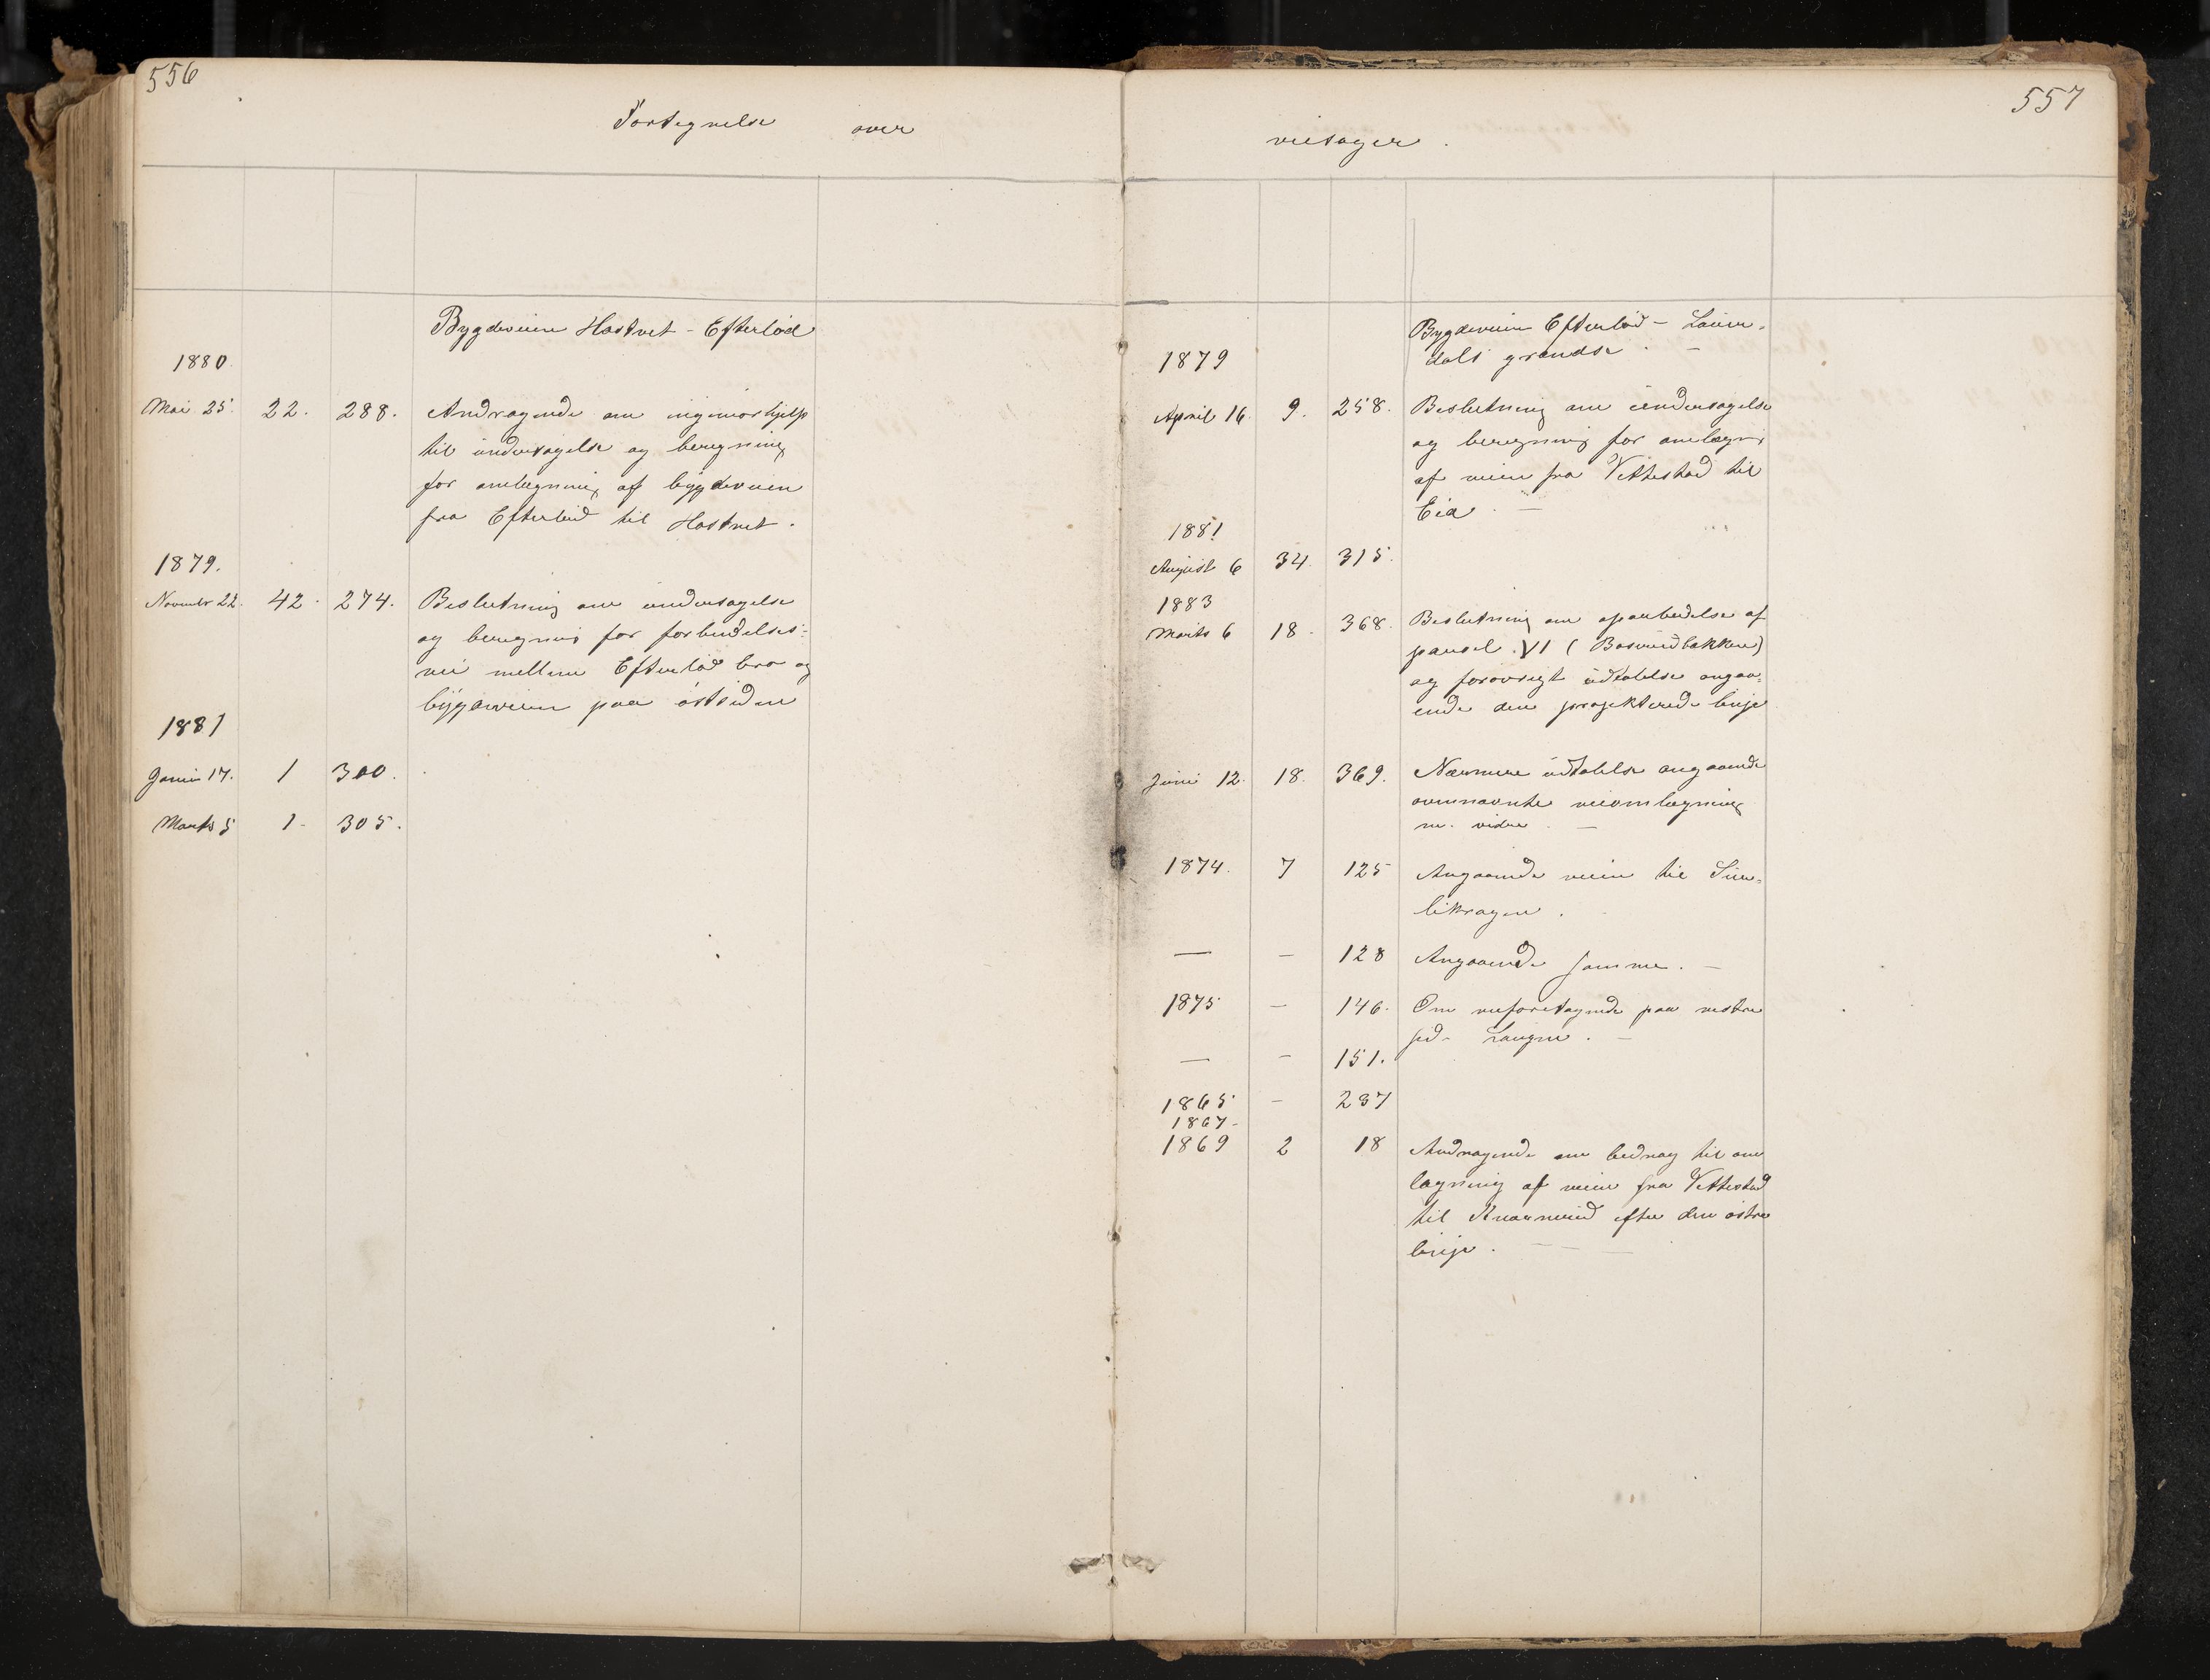 556
Fortegnelse over
Bygdeveien Hostvet - Efterlød
1880
Mai 25. 22. 288. Andragende om ingeniørhjelp
til undersøgelse og beregning
for omlægning af bygdeveien
fra Efterløid til Hostvet.
1879.
November 22. 42. 274. Beslutning om undersøgelse
og beregning for forbindelses=
vei mellem Efterløid bro og
bygdeveien paa østsiden
1881
Januar 17. 1 300.
Marts 5 1. 305.
557
veisager.
Bygdeveien Efterløid - Lauer=
dals grændse. -
1879
April 16. 9. 258. Beslutning om undersøgelse
og beregning for omlægn.
af veien fra Vittestad til
Eia. -
1881
August 6 34. 315.
1883
Marts 6 18. 368. Beslutning om oparbeidelse af
parsel VI (Bosvindbakken)
og forøvrigt udtalelse angaa=
ende den projekterede linje
Juni 12. 18. 369. Nærmere udtalelse angaaende
ovennævnte veiomlægning
m. videre. -
1874. 7 125 Angaaende veien til
likragen.
— - 128 Angaaende samme. -
1875 - 146. Om veiforetagende paa vestre
sid. Laugen. -
— - 151.
1865 - 237
1867-
1869 2 18 Andragende om bidrag til om
lægning af veien fra Vittestad
til efter den østre
linje. - - -